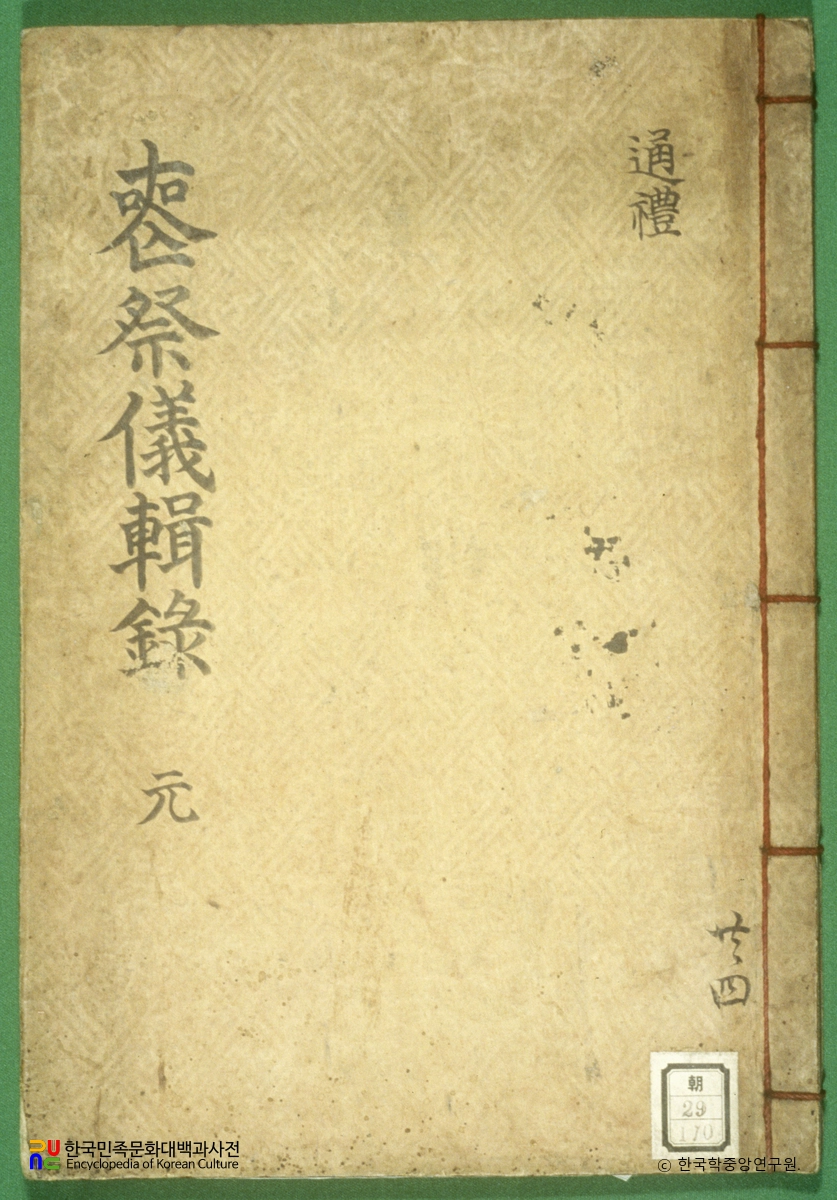 通禮
喪祭儀輯錄 元
共四
朝
29
170
한국민족문화대백과사전
Encyclopedia of Korean Culture
© 한국학중앙연구원.